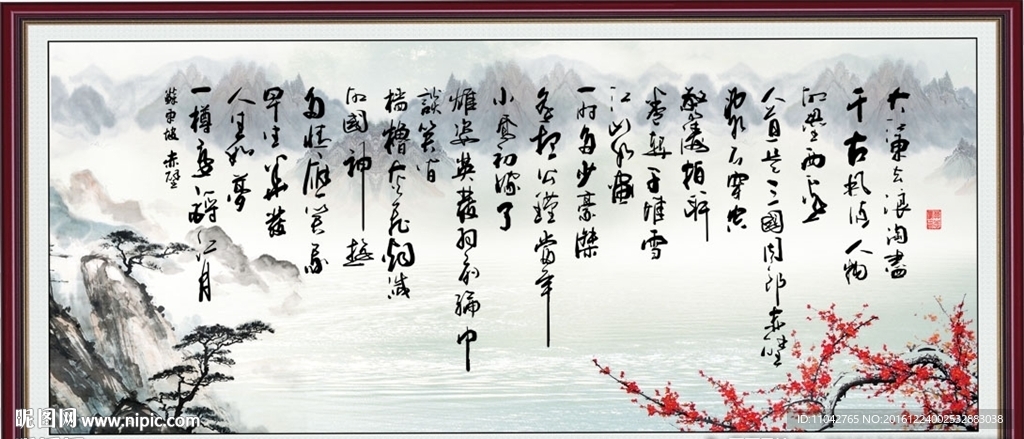 大江東去浪淘盡
千古風流人物
故壘西邊
人道是三國周郎赤壁
亂石穿空
驚濤拍岸
卷起千堆雪
江山如畫
一時多少豪傑
遙想公瑾當年
小喬初嫁了
雄姿英發羽扇綸巾
談笑間
檣櫓灰飛烟滅
故國神遊
多情應笑我
早生華髮
人生如夢
一樽還酹江月
蘇東坡 赤壁
昵图网 www.nipic.com
ID:11042765 NO:20161224002532883038